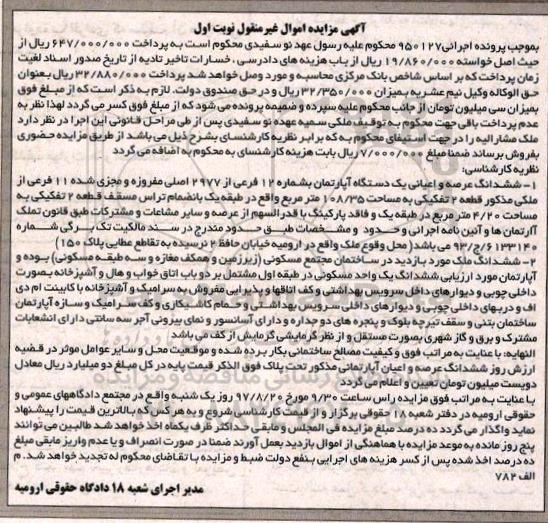 آگهی مزایده اموال غیرمنقول نوبت اول
بموجب پرونده اجرائی ۹۵۰۱۲۷ محکوم علیه رسول عهد نو سفیدی محکوم است به پرداخت ۶۴۷/۰۰۰/۰۰۰ ریال از
حیث اصل خواسته ۱۹/۸۶۰/۰۰۰ ریال از باب هزینه های دادرسی ، خسارات تاخیر تادیه از تاریخ صدور اسناد لغیت
زمان پرداخت که بر اساس شاخص بانک مرکزی محاسبه و مورد وصل خواهد شد پرداخت ۳۲/۸۸۰/۰۰۰ ریال بعنوان
حق الوکاله وکیل نیم عشر به میزان ۳۲/۳۵۰/۰۰۰ ریال و در حق صندوق دولت. لازم به ذکر است که از مبلغ فوق
بمیزان سی میلیون تومان از جانب محکوم علیه سپرده و ضمیمه پرونده می شود که از مبلغ فوق کسر می گردد لهذا نظر به
عدم پرداخت باقی جهت محکوم به توقیف ملکی سمیه عهده نو سفیدی پس از طی مراحل قانونی این اجرا در نظر دارد
ملک مشارالیه را در جهت استیفای محکوم به که برابر نظریه کارشناسی بشرح ذیل می باشد از طریق مزایده حضوری
بفروش برساند ضمنا مبلغ ۷/۰۰۰/۰۰۰ ریال بابت هزینه کارشناسی به محکوم به اضافه می گردد
نظریه کارشناسی:
۱- ششدانگ عرصه و اعیانی یک دستگاه آپارتمان بشماره ۱۲ فرعی از ۲۹۷۷ اصلی مفروزه و مجزی شده ۱۱ فرعی از
ملکی مذکور قطعه ۲ تفکیکی به مساحت ۱۰۸/۳۵ متر مربع واقع در طبقه یک بانضمام تراس مسقف قطعه ۲ تفکیکی به
مساحت ۴/۲۰ متر مربع در طبقه یک و فاقد پارکینگ با قدر السهم از عرصه و سایر مشاعات و مشترکات طبق قانون تملک
آآرتمان ها و آئین نامه اجرائی و حدود و مشخصات طبق حدود مندرج در سند مالکیت تک برگی شماره
۶۱۳۳۱۴۰/ج/۹۳ می باشد( محل وقوع ملک واقع در ارومیه خیابان حافظ ۲ نرسیده به تقاطع عطایی پلاک ۱۵۰)
۲- ششدانگ ملک مورد بازدید در ساختمان مجتمع مسکونی (زیرزمین و همکف مغازه و سه طبقه مسکونی) بوده و
آپارتمان مورد ارزیابی ششدانگ یک واحد مسکونی در طبقه اول مشتمل بر دو باب اتاق خواب و هال و آشپزخانه بصورت
داخلی چوبی و دیوارهای داخل سرویس بهداشتی و کف اتاقها و پذیرایی مفروش به سرامیک و آشپزخانه با کابینت ام دی
اف و دربهای داخلی چوبی و دیوارهای داخلی سرویس بهداشتی و حمام کاشیکاری و کف سرامیک و سازه آپارتمان
ساختمان بتنی و سقف تیرچه بلوک و پنجره های دو جداره و دارای آسانسور و نمای بیرونی آجر سه سانتی دارای انشعابات
مشترک و برق و گاز شهری بصورت مستقل و از نظر گرمایشی گرمایش از کف می باشد
النهایه: با عنایت به مراتب فوق و کیفیت مصالح ساختمانی بکار برده شده و موقعیت محل و سایر عوامل موثر در قضیه
ارزش روز ششدانگ عرصه و اعیان آپارتمانی مذکور تحت پلاک فوق الذکر قیمت پایه در کل مبلغ دو میلیارد ریال معادل
دویست میلیون تومان تعیین و اعلام می گردد
با عنایت به مراتب فوق مزایده راس ساعت ۹/۳۰ مورخ ۹۷/۸/۲۰ روز یک شنبه واقع در مجتمع دادگاههای عمومی و
حقوقی ارومیه در دفتر شعبه ۱۸ حقوقی برگزار و از قیمت کارشناسی شروع و به هر کس که بالاترین قیمت را پیشنهاد
نماید واگذار می گردد ده درصد مبلغ مزایده فی المجلس و مابقی حداکثر ظرف یکماه اخذ خواهد شد طالبین می توانند
پنج روز مانده به موعد مزایده با هماهنگی از اموال بازدید بعمل آورند ضمنا در صورت انصراف و یا عدم واریز مابقی مبلغ
ده درصد اخذ شده پس از کسر هزینه های اجرایی بنفع دولت ضبط و مزایده با تقاضای محکوم له تجدید خواهد شد. م
الف ۷۸۲
مدیر اجرای شعبه ۱۸ دادگاه حقوقی ارومیه